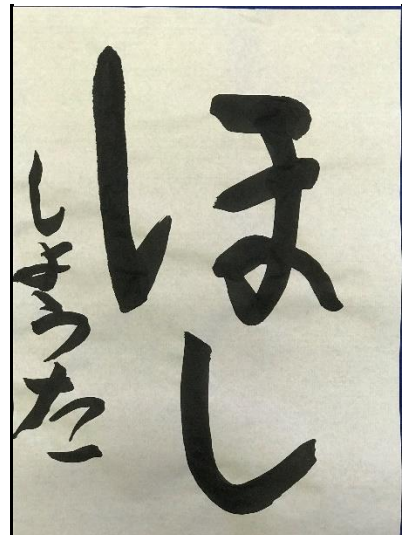 ほし
しようた